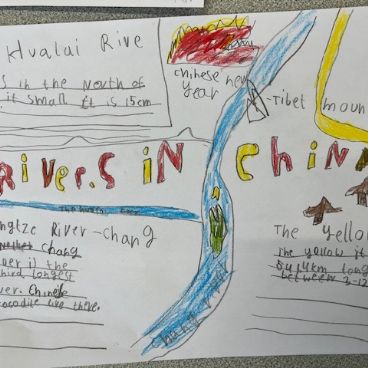 Hualai Rive
s in the north of
it small it is 15cm
chinese new
year
-Tibet moun
RiveR.S iN China
ngtze River-chang
chang
ver is the
third longest
ver. Chinese
ocodile live there.
The yellow
The yellow it
5464km long
between 3-12